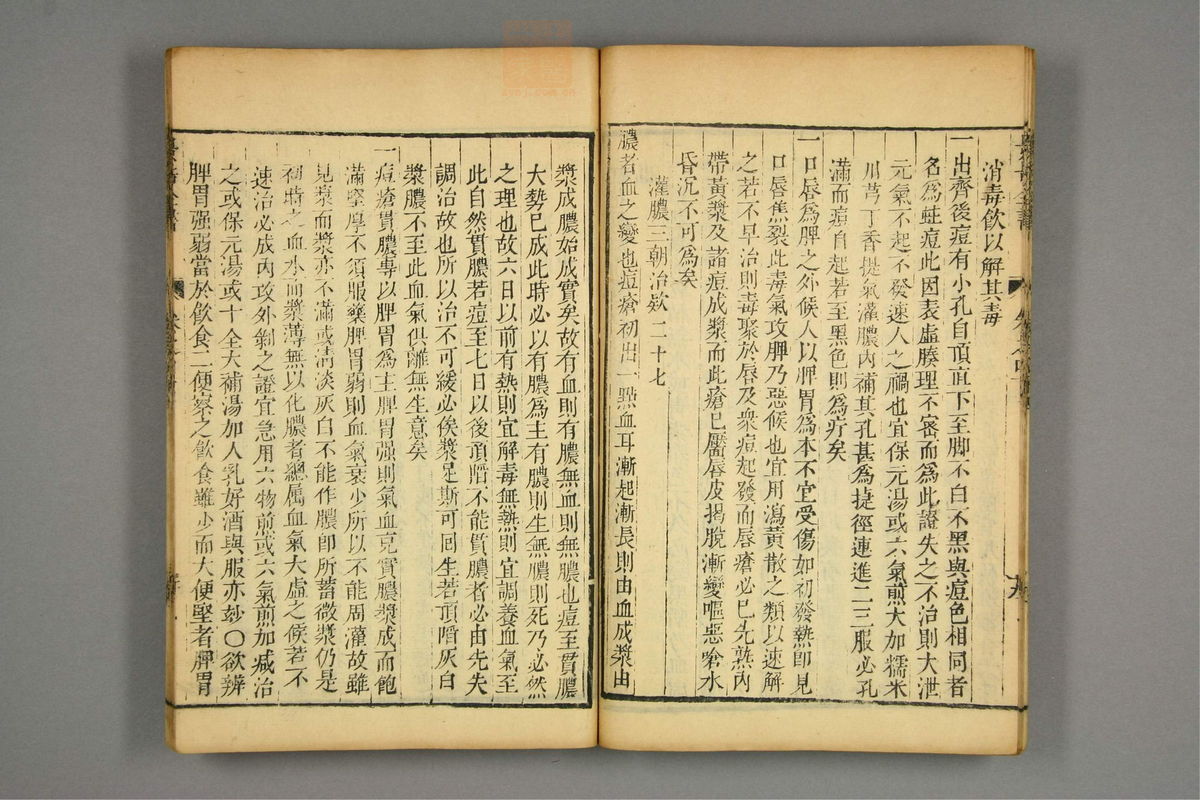 消毒飲以解其毒
一出齊後痘有小孔自頂直下至脚不白不黑與痘色相同者
名爲蛀痘此因表虛腠理不密而爲此證失之不治則大泄
元氣不起不發速人之禍也宜保元湯或六氣煎大加糯米
川芎丁香提氣灌膿內補其孔甚爲捷徑連進二三服必孔
滿而痘自起若至黑色則爲疔矣
一口唇爲脾之外候人以脾胃爲本不宜受傷如初發熱卽見
口唇焦裂此毒氣攻脾乃惡候也宜用瀉黃散之類以速解
之若不早治則毒聚於唇及衆痘起發而唇瘡必已先熟內
帶黃漿及諸痘成漿而此瘡已靨唇皮揭脫漸變嘔惡嗆水
昏沉不可爲矣
灌膿三朝治欵二十七
膿者血之變也痘瘡初出一點血耳漸起漸長則由血成漿由
漿成膿始成實矣故有血則有膿無血則無膿也痘至貫膿
大勢已成此時必以有膿爲主有膿則生無膿則死乃必然
之理也故六日以前有熱則宜解毒無熱則宜調養血氣至
此自然貫膿若痘至七日以後頂䧟不能貫膿者必由先失
調治故也所以治不可緩必俟漿足斯可回生若頂䧟灰白
漿膿不至此血氣俱離無生意矣
一痘瘡貫膿專以脾胃爲主脾胃强則氣血充實膿漿成而飽
滿堅厚不須服藥脾胃弱則血氣衰少所以不能周灌故雖
見痘而漿亦不滿或清淡灰白不能作膿卽所蓄微漿仍是
初時之血水而漿薄無以化膿者總属血氣大虛之候若不
速治必成內攻外剝之證宜急用六物煎或六氣煎加减治
之或保元湯或十全大補湯加人乳好酒與服亦妙〇欲辨
脾胃强弱當於飲食二便察之飲食雖少而大便堅者脾胃